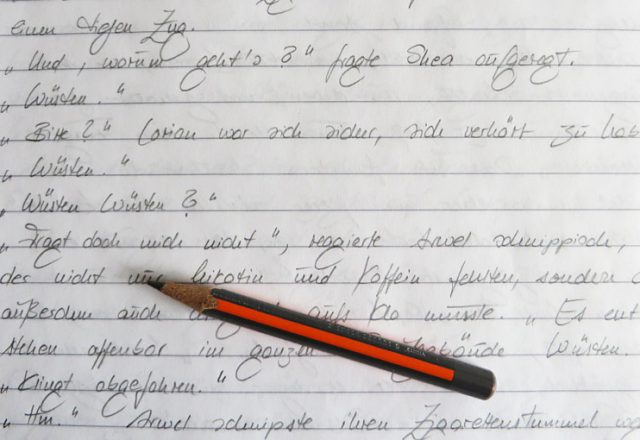 einen tiefen Zug.
„Und, worum geht's?“ fragte Shea aufgeregt.
„Wüsten.“
„Bitte?“ Lorian war sich sicher, sich verhört zu hab
„Wüsten.“
„Wüsten Wüsten?“
„Fragt doch mich nicht“, reagierte Arwel schnippisch,
der nicht nur Nikotin und Koffein fehlten, sondern
außerdem auch aufs Klo musste. „Es ent
stehen offenbar im ganzen Gebäude Wüsten.
„Klingt abgefahren.“
„Hm.“ Arwel schnipste ihren Zigarettenstummel